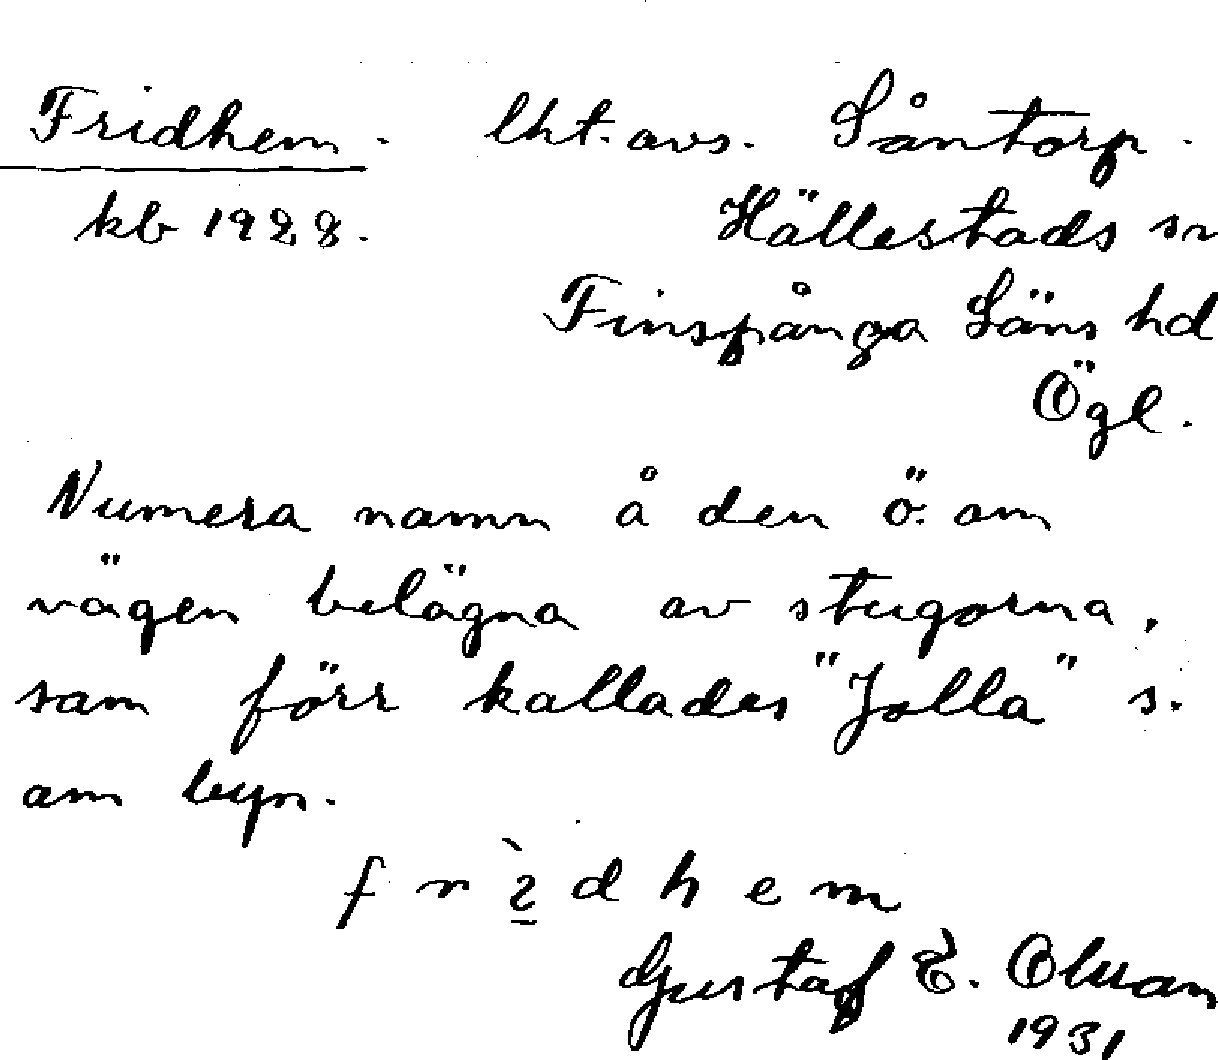 Fridhem. lht. avs. Såntorp.
kb 1928. Hällestads sn
Finspånga Läns hd
Ögl.
Numera namn å den ö. om
vägen belägna av stugorna,
som förr kallades "Jolla" s.
om byn.
f r ì d h e m
Gustaf E. Olson
1931